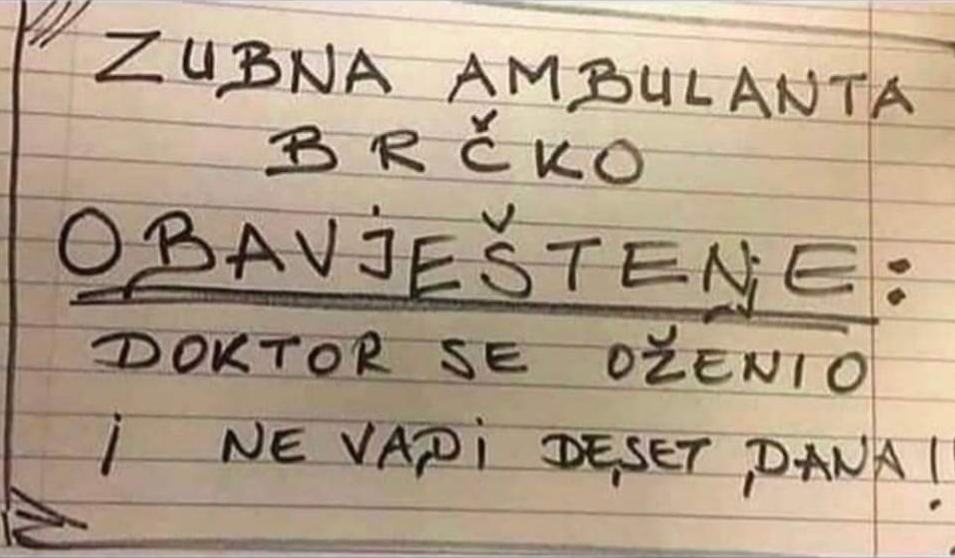 ZUBNA AMBULANTA
BRČKO
OBAVJEŠTENJE:
DOKTOR SE OŽENIO
i NE VADi DESET DANA!